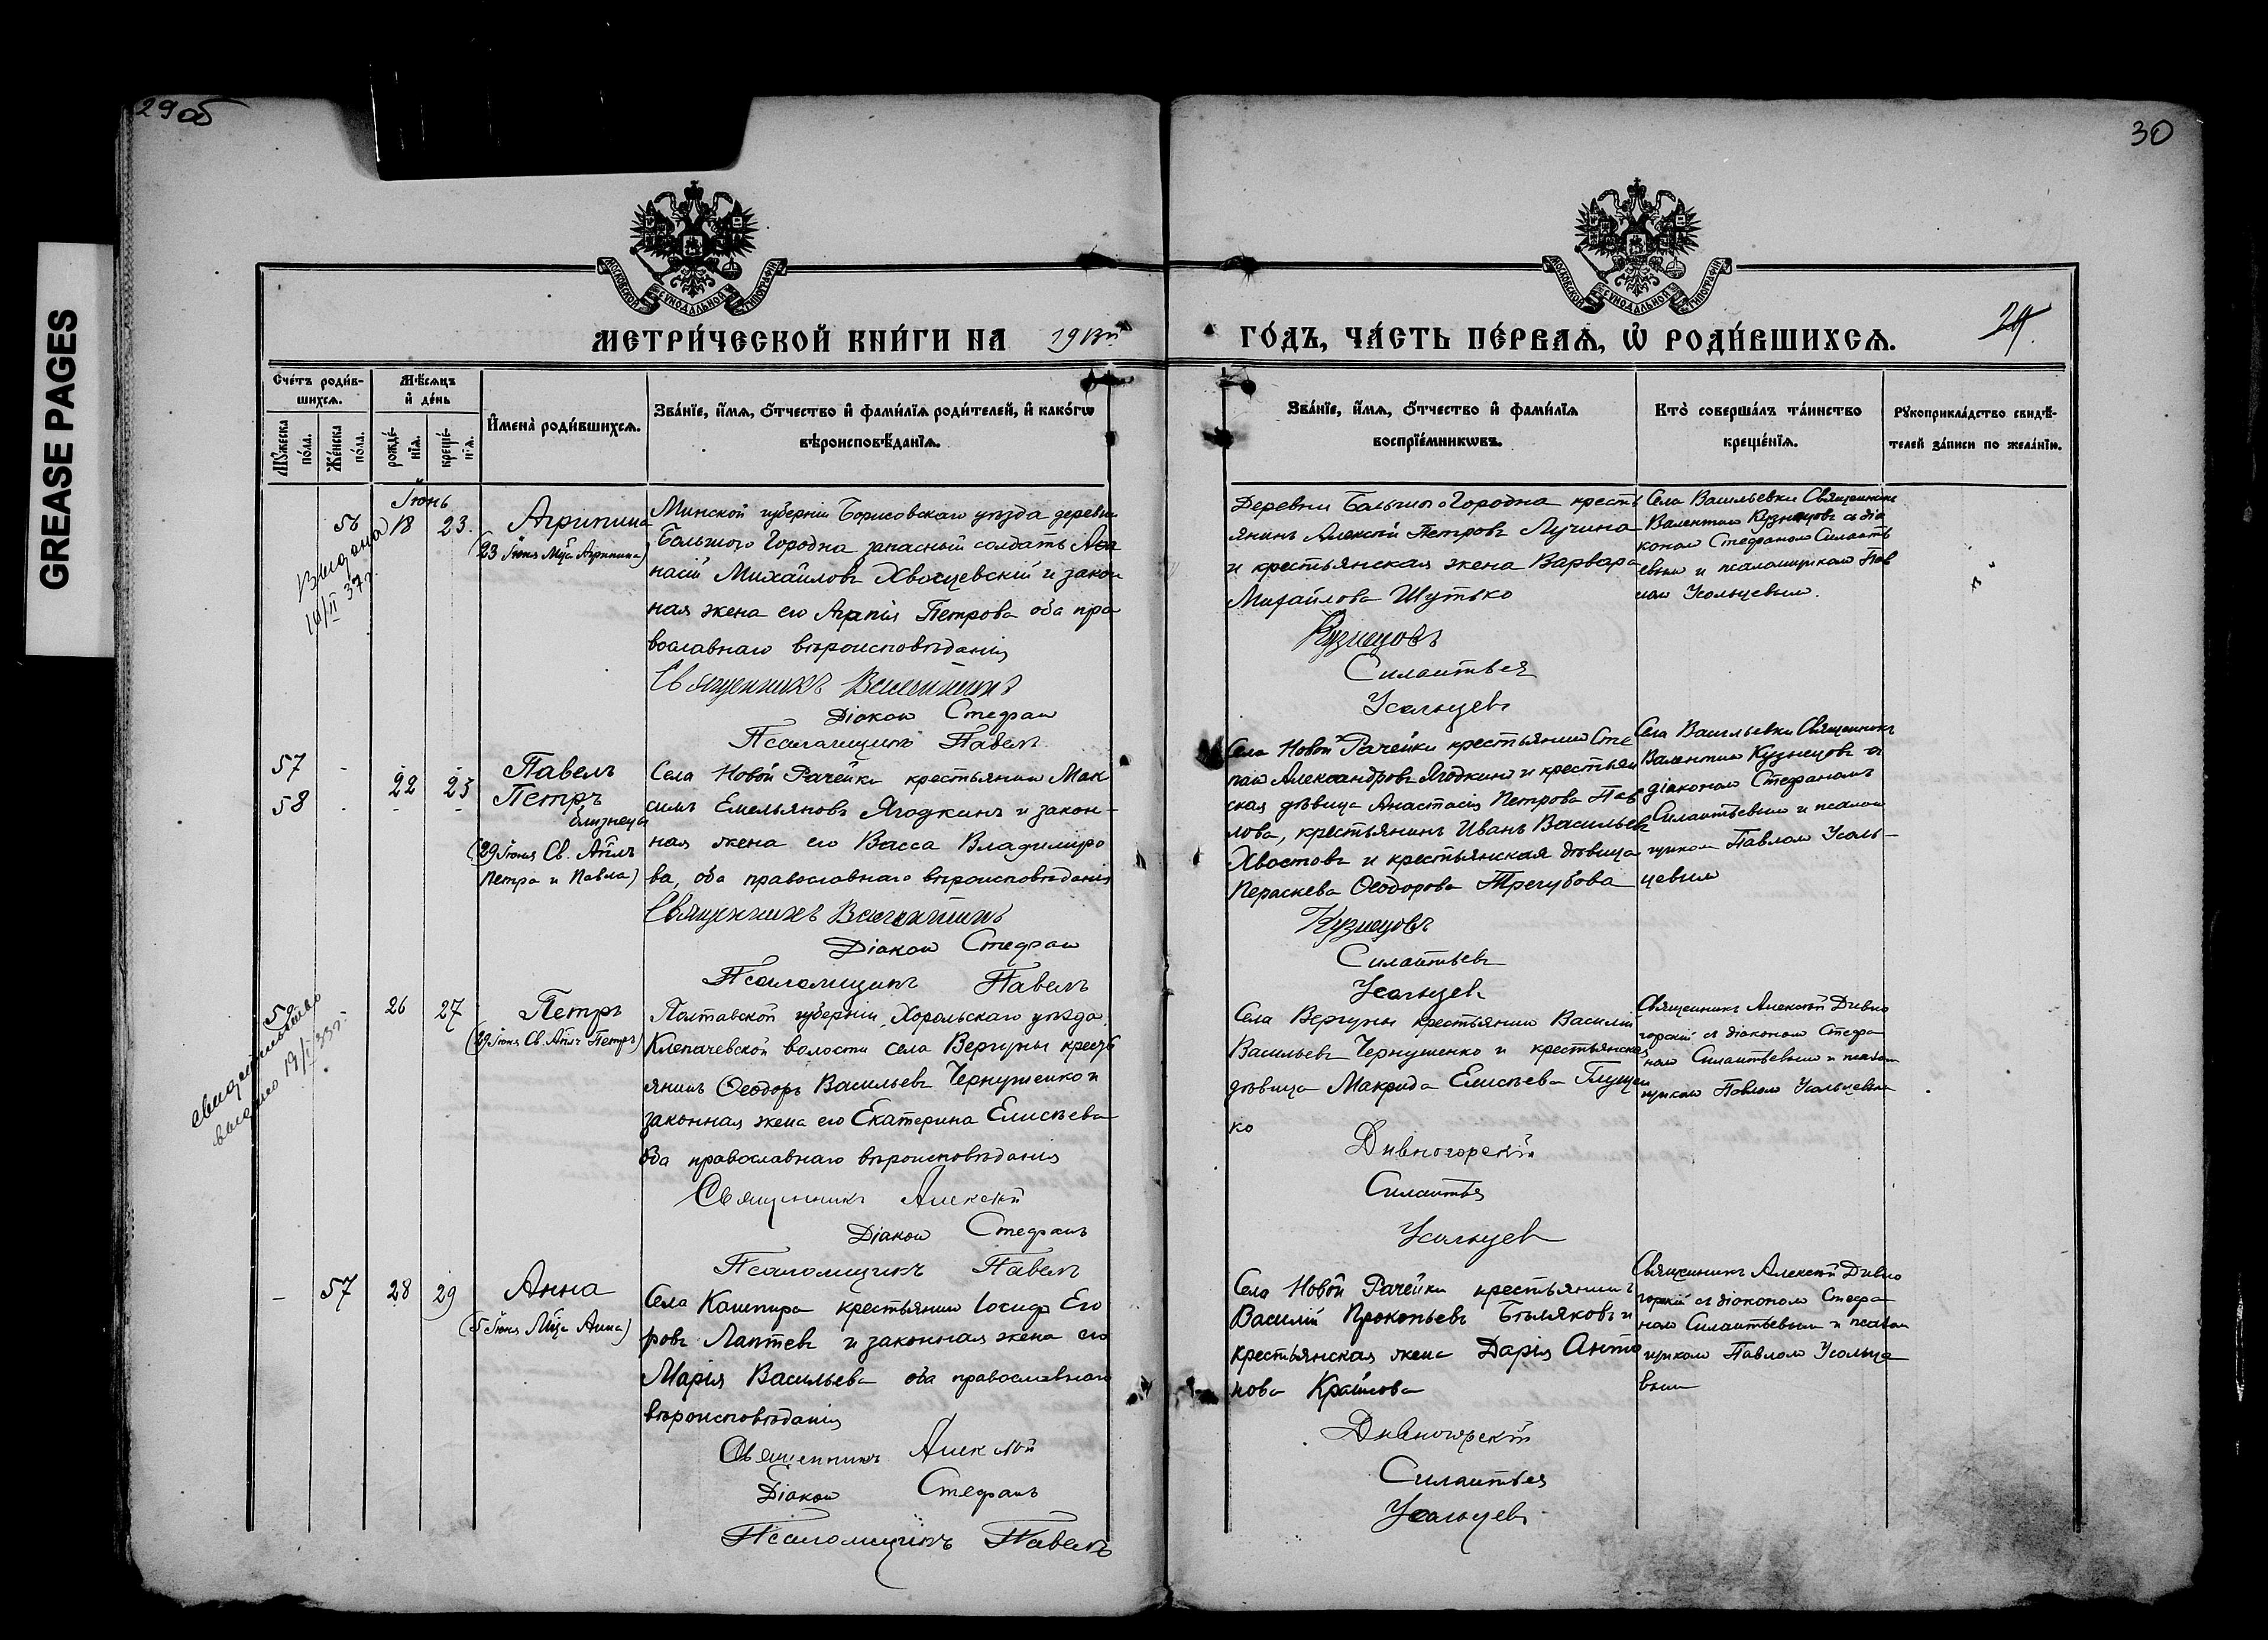 GREASE PAGES
29 об
30
МОСКОВСКОЙ СѴНОДАЛЬНОЙ ТИПОГРАФІИ
МОСКОВСКОЙ СѴНОДАЛЬНОЙ ТИПОГРАФІИ
МЕТРИ́ЧЕСКОЙ КНИ́ГИ НА
ГО́ДЪ, ЧА́СТЬ ПЕ́РВАѦ, Ѡ҆ РОДИ́ВШИХСѦ.
29.
Сче́тъ роди́в-
шихсѧ.
Мꙋ́жеска по́ла.
Же́нска по́ла.
Мѣ́сѧцъ
и҆ де́нь
рожде́-
нїѧ.
креще́-
нїѧ.
И҆мена̀ роди́вшихсѧ.
Зва́нїе, и҆́мѧ, ѻ҆́тчество и҆ фами́лїѧ роди́телей, и҆ како́гѡ
вѣроисповѣ́данїѧ.
Зва́нїе, и҆́мѧ, ѻ҆́тчество и҆ фами́лїѧ
воспрїе́мникѡвъ.
Кто̀ соверша́лъ та́инство
креще́нїѧ.
Рꙋкоприкла́дство свидѣ́-
телей за́писи по жела́нїю.
Іюнь
56
18
23.
Выдана
14/II 37 г.
Агрипина
(23 Іюня Мц̃а Агрипина)
Минской губерніи Борисовскаго уѣзда деревни
Большого Городна запасный солдатъ Аѳа
насій Михайловъ Хвощевскій и закон
ная жена его Агапія Петрова оба пра
вославнаго вѣроисповѣданія
Священникъ Валентинъ
Діакон Стефан
Псаломщикъ Павелъ
Деревни Большого Городна кресть
янинъ Алексій Петровъ Лучина
и крестьянская жена Варвара
Михайлова Шутько
Кузнецовъ
Силантьев
Усольцевъ
Села Васильевки Священник
Валентин Кузнецовъ съ діа
коном Стефаном Силанть
евым и псаломщиком Пав
лом Усольцевым.
57
58
22
23
Павелъ
Петръ
близнецы
(29 Іюня Св. Ап̃лъ
Петра и Павла)
Села Новой Рачейки крестьянин Мак
симъ Емельяновъ Ягодкинъ и закон-
ная жена его Васса Владимiро
ва, оба православнаго вѣроисповѣданія
Священникъ Валентинъ
Діакон Стефан
Псаломщикъ Павелъ
Села Новой Рачейки крестьянин Сте
пан Александровъ Ягодкин и крестьян
ская дѣвица Анастасія Петрова Пав
лова, крестьянинъ Иванъ Васильев
Хвостовъ и крестьянская дѣвица
Параскева Ѳеодорова Трегубова
Кузнецовъ
Силантьевъ
Усольцев
Села Васильевки Священникъ
Валентин Кузнецовъ съ
діаконом Стефаномъ
Силантьевым и псалом
щиком Павлом Усоль-
цевым
59
26
27
свидѣтельство
выдано 19/I 33 г.
Петръ
(29 Іюня Св. Ап̃лъ Петръ)
Полтавской губерніи, Хорольскаго уѣзда
Клепачевской волости села Вергуны кресть
янинъ Ѳеодоръ Васильевъ Чернушенко и
законная жена его Екатерина Елисѣева
оба православнаго вѣроисповѣданія
Священникъ Алексій
Діакон Стефанъ
Псаломщикъ Павелъ
Села Вергуны крестьянин Василій
Васильевъ Чернушенко и крестьянская
дѣвица Макрида Елисѣева Глущен
ко
Дивногорскій
Силантьев
Усольцев
Священникъ Алексѣй Дивно
горскій съ діаконом Стефа
ном Силантьевым и псалом
щиком Павлом Усольцевым
57
28
29
Анна
(5 Іюня Мц̃а Анна)
Села Кашпира крестьянин Іосиф Его
ровъ Лаптев и законная жена его
Марія Васильева оба православнаго
вѣроисповѣданія
Священникъ Алексій
Діакон Стефанъ
Псаломщикъ Павелъ
Села Новой Рачейки крестьянинъ
Василій Прокопьевъ Бѣляковъ и
крестьянская жена Дарія Анто
нова Крайнова
Дивногорскій
Силантьев
Усольцевъ
Священникъ Алексѣй Дивно
горскій съ діаконом Стефа
ном Силантьевым и псалом
щиком Павлом Усольце
вым